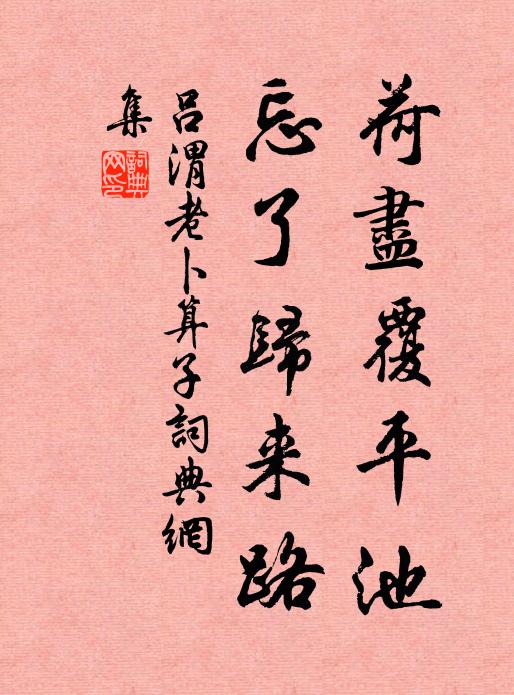 荷盡覆平池
忘了歸来路
吕渭老卜算子詞典網
集
詞典
网印